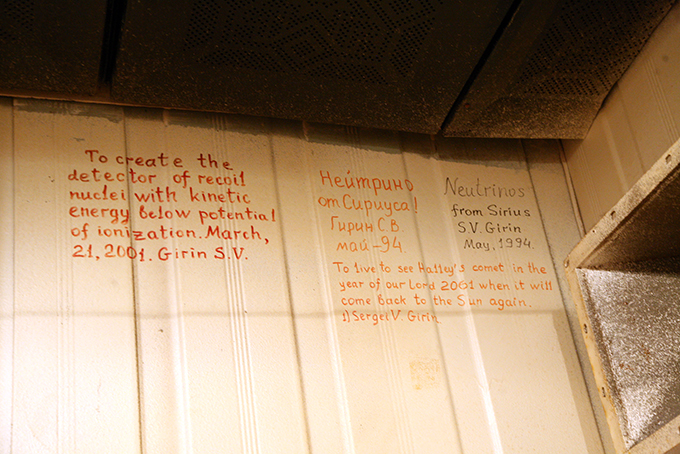 To create the
detector of recoil
nuclei with kinetic
energy below potential
of ionization. March,
21, 2001. Girin S.V.
Нейтрино
от Сириуса!
Гирин С.В.
май-94.
Neutrinos
from Sirius
S.V. Girin
May, 1994.
To live to see Halley's comet in the
year of our Lord 2061 when it will
come back to the Sun again.
1) Sergei V. Girin